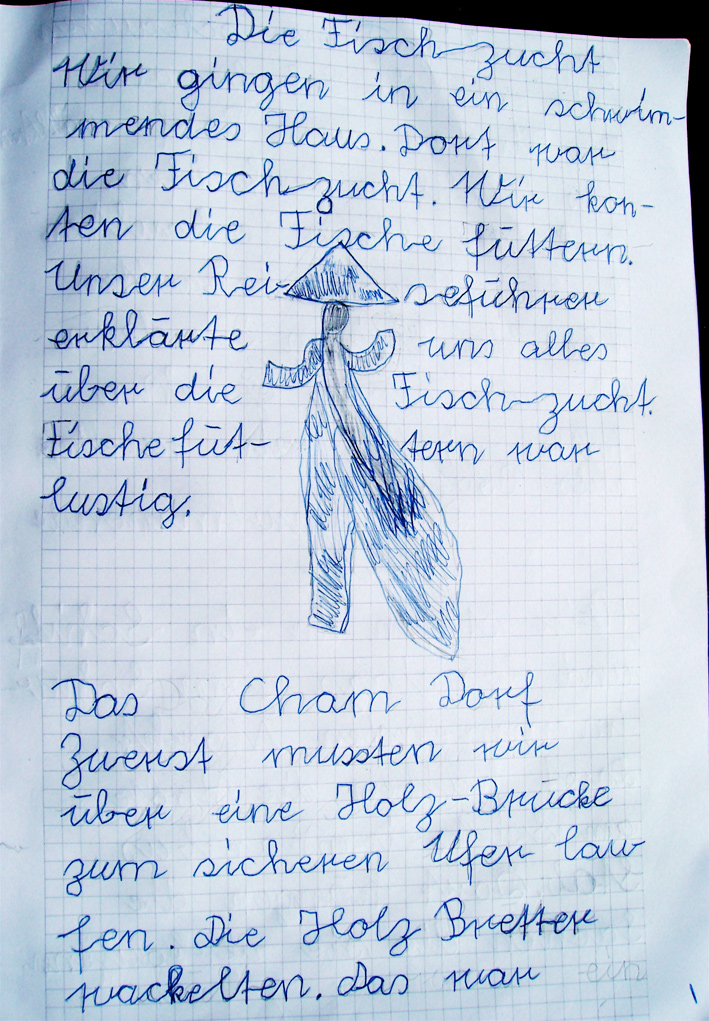 Die Fisch-zucht
Wir gingen in ein schwim-
mendes Haus. Dort war
die Fisch-zucht. Wir kon-
ten die Fische füttern.
Unser Rei- seführer
erklärte uns alles
über die Fisch-zucht.
Fische füt- tern war
lustig.
Das Cham Dorf
Zuerst mussten wir
über eine Holz-Brücke
zum sicheren Ufer lau
fen. Die Holz Bretter
wackelten. Das war ein